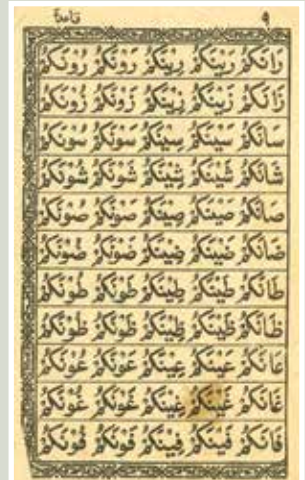 ٩ قاعدة
رَانَكُمْ رَيْنَكُمْ رِيْنَكُمْ رَوْنَكُمْ رُوْنَكُمْ
زَانَكُمْ زَيْنَكُمْ زِيْنَكُمْ زَوْنَكُمْ زُوْنَكُمْ
سَانَكُمْ سَيْنَكُمْ سِيْنَكُمْ سَوْنَكُمْ سُوْنَكُمْ
شَانَكُمْ شَيْنَكُمْ شِيْنَكُمْ شَوْنَكُمْ شُوْنَكُمْ
صَانَكُمْ صَيْنَكُمْ صِيْنَكُمْ صَوْنَكُمْ صُوْنَكُمْ
ضَانَكُمْ ضَيْنَكُمْ ضِيْنَكُمْ ضَوْنَكُمْ ضُوْنَكُمْ
طَانَكُمْ طَيْنَكُمْ طِيْنَكُمْ طَوْنَكُمْ طُوْنَكُمْ
ظَانَكُمْ ظَيْنَكُمْ ظِيْنَكُمْ ظَوْنَكُمْ ظُوْنَكُمْ
عَانَكُمْ عَيْنَكُمْ عِيْنَكُمْ عَوْنَكُمْ عُوْنَكُمْ
غَانَكُمْ غَيْنَكُمْ غِيْنَكُمْ غَوْنَكُمْ غُوْنَكُمْ
فَانَكُمْ فَيْنَكُمْ فِيْنَكُمْ فَوْنَكُمْ فُوْنَكُمْ